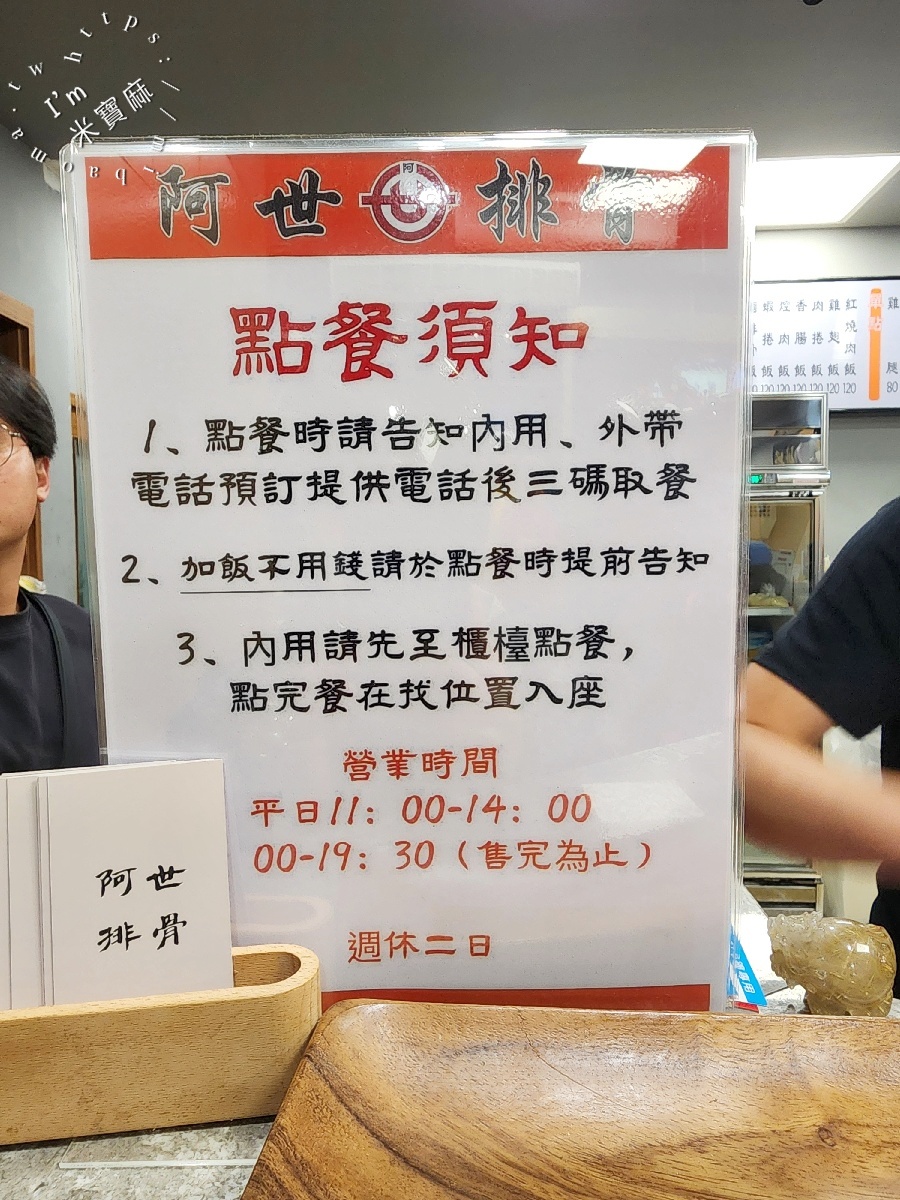 I'm
米寶麻
阿世排骨
點餐須知
1、點餐時請告知內用、外帶
電話預訂提供電話後三碼取餐
2、加飯不用錢請於點餐時提前告知
3、內用請先至櫃檯點餐，
點完餐在找位置入座
營業時間
平日11：00-14：00
00-19：30（售完為止）
週休二日
阿世
排骨
蝦捲飯 120
焢肉飯 120
香腸飯 120
肉捲飯 120
雞翅飯 120
紅燒肉飯 120
單點
80